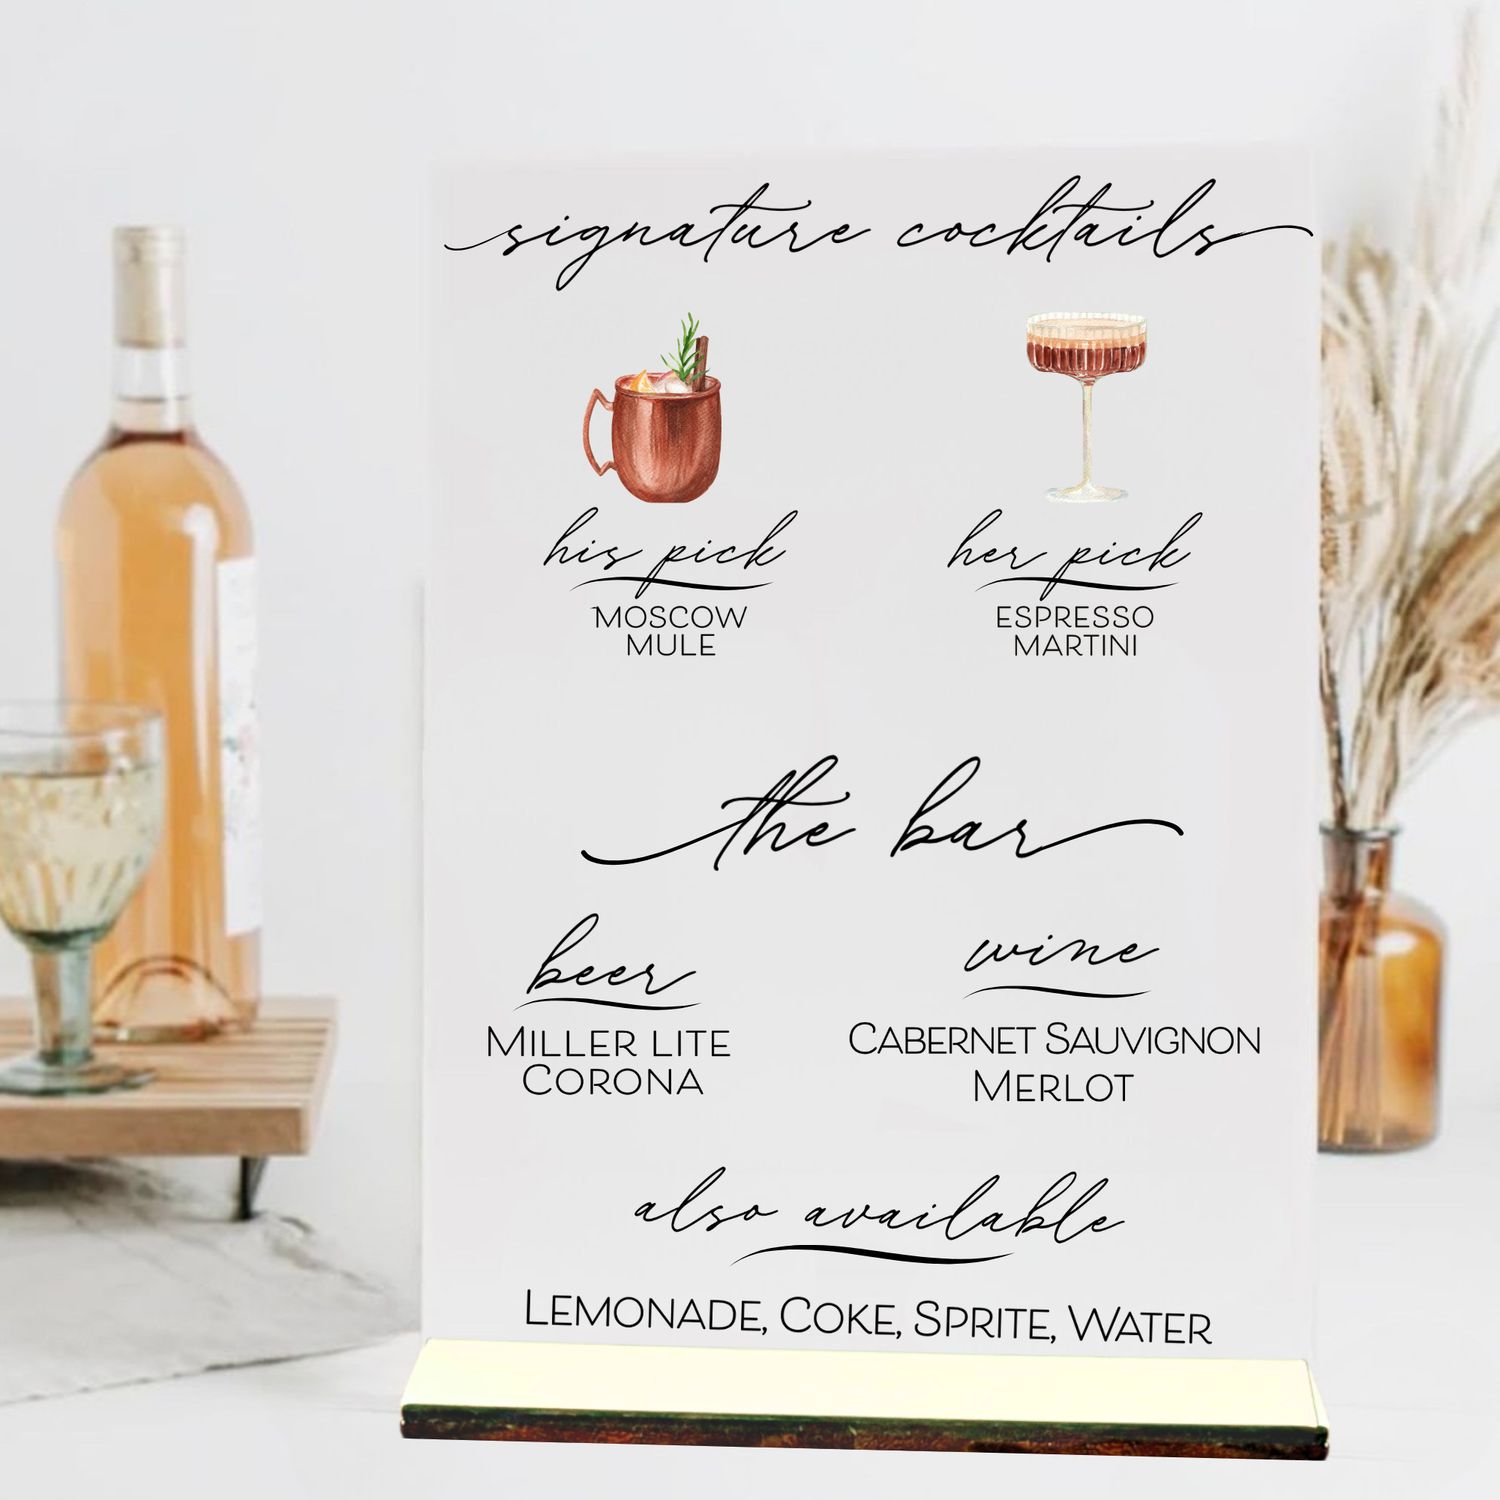 signature cocktails
his pick
MOSCOW
MULE
her pick
ESPRESSO
MARTINI
the bar
beer
MILLER LITE
CORONA
wine
CABERNET SAUVIGNON
MERLOT
also available
LEMONADE, COKE, SPRITE, WATER